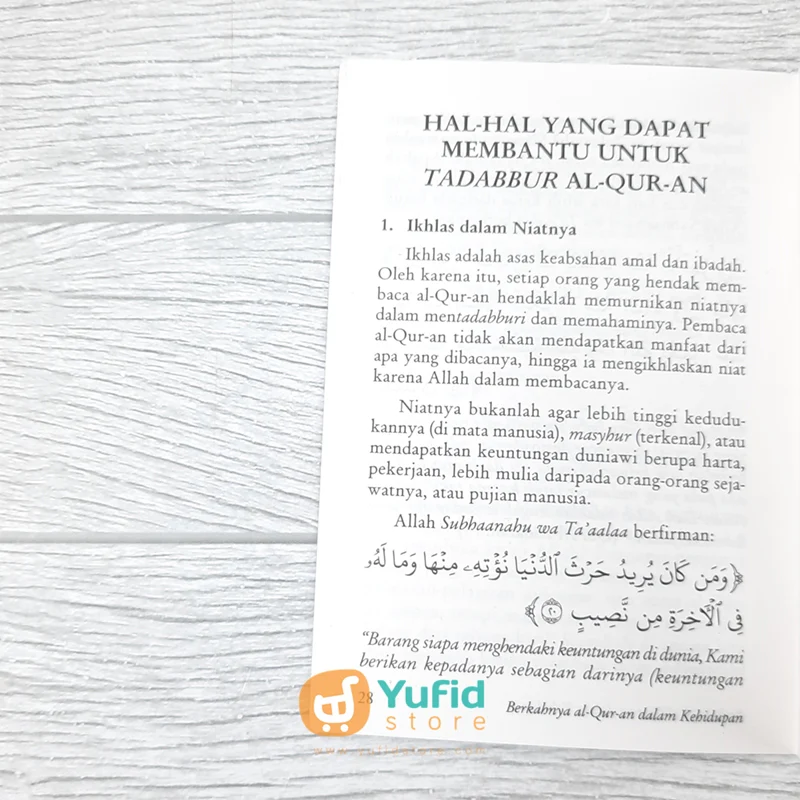 HAL-HAL YANG DAPAT
MEMBANTU UNTUK
TADABBUR AL-QUR-AN
1. Ikhlas dalam Niatnya
Ikhlas adalah asas keabsahan amal dan ibadah.
Oleh karena itu, setiap orang yang hendak mem-
baca al-Qur-an hendaklah memurnikan niatnya
dalam mentadabburi dan memahaminya. Pembaca
al-Qur-an tidak akan mendapatkan manfaat dari
apa yang dibacanya, hingga ia mengikhlaskan niat
karena Allah dalam membacanya.
Niatnya bukanlah agar lebih tinggi kedudu-
kannya (di mata manusia), masyhur (terkenal), atau
mendapatkan keuntungan duniawi berupa harta,
pekerjaan, lebih mulia daripada orang-orang seja-
watnya, atau pujian manusia.
Allah Subhaanahu wa Ta'aalaa berfirman:
﴿وَمَن كَانَ يُرِيدُ حَرْثَ ٱلدُّنْيَا نُؤْتِهِۦ مِنْهَا وَمَا لَهُۥ
فِى ٱلْأٓخِرَةِ مِن نَّصِيبٍ ۝٢٠﴾
“Barang siapa menghendaki keuntungan di dunia, Kami
berikan kepadanya sebagian darinya (keuntungan
28
Berkahnya al-Qur-an dalam Kehidupan
Yufid
store